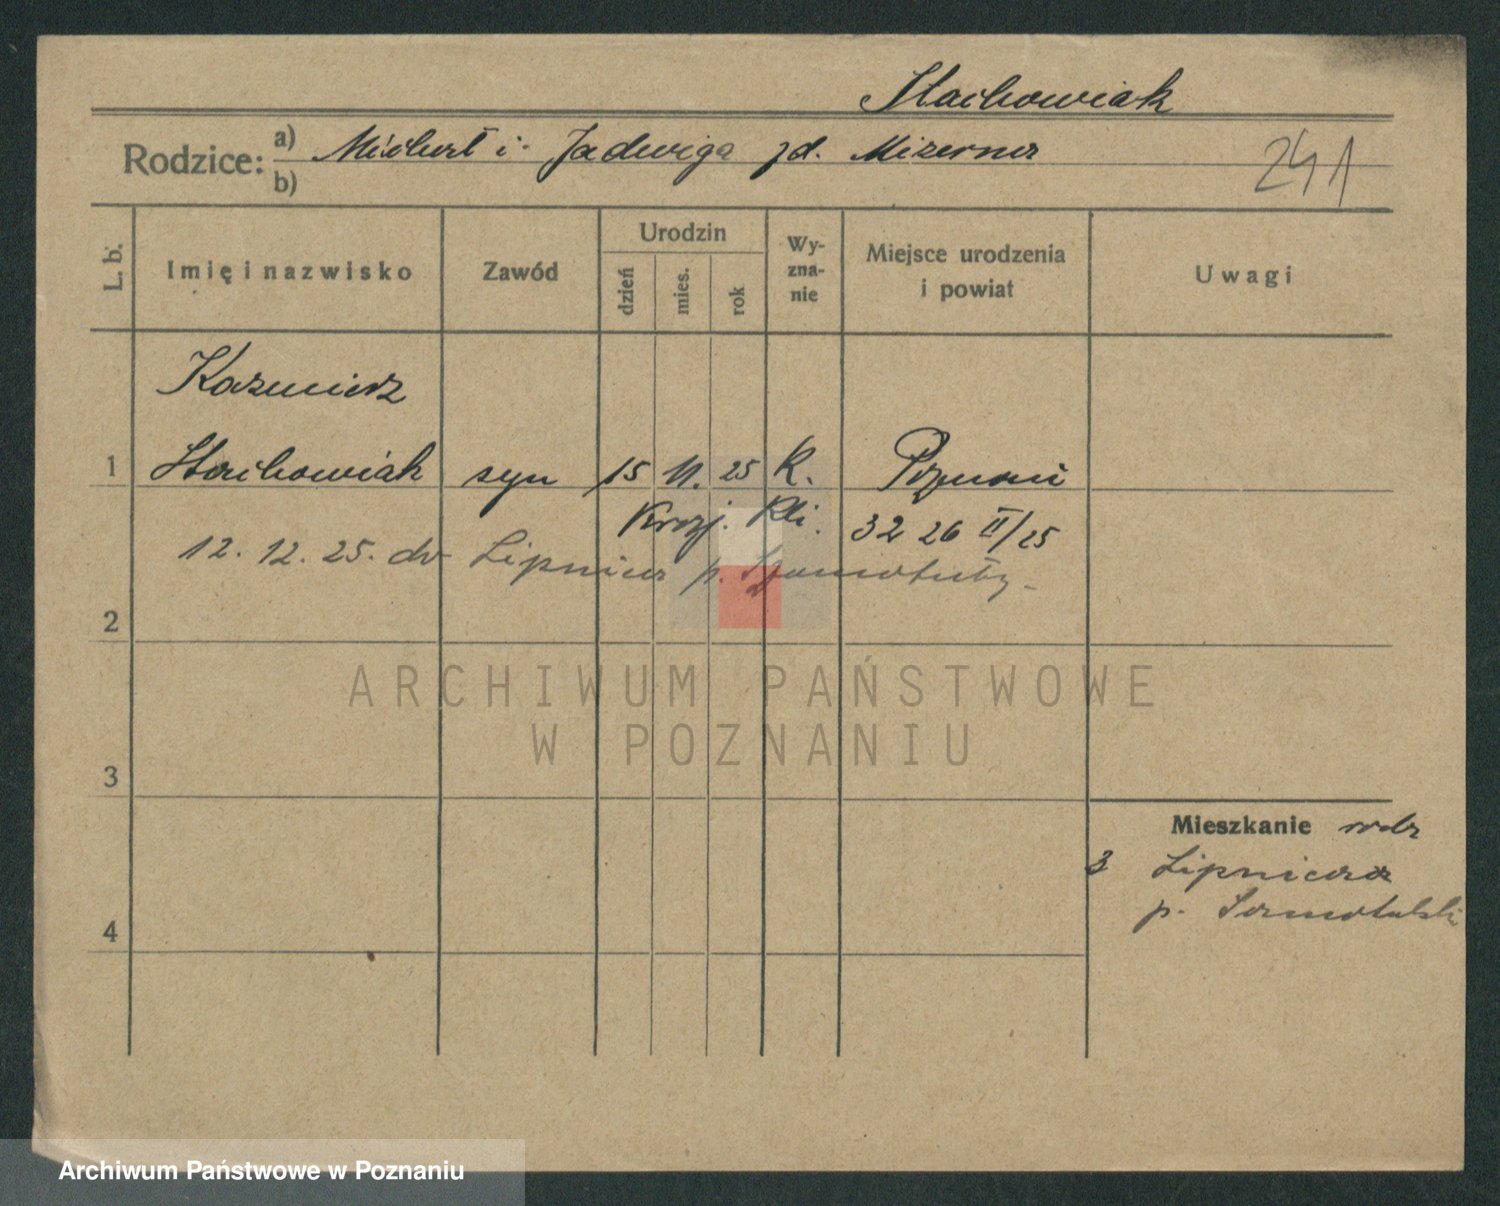 Stachowiak
Rodzice: a) Michał i Jadwiga zd. Mizerna
b)
241
L. b. Imię i nazwisko Zawód Urodzin dzień mies. rok Wyznanie Miejsce urodzenia i powiat Uwagi
Kazimierz
1 Stachowiak syn 15 11. 25 K. Poznań
Kli. 32 26 II/25
12. 12. 25. do Lipnica p. Szamotuły
2
ARCHIWUM PAŃSTWOWE
W POZNANIU
3
Mieszkanie
3 Lipnica
p.
4
Archiwum Państwowe w Poznaniu